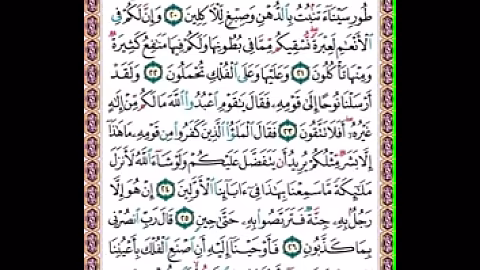 طُورِ سَيْنَآءَ تَنۢبُتُ بِٱلدُّهْنِ وَصِبْغٍ لِّلْأَكِلِينَ ٢٠ وَإِنَّ لَكُمْ فِى
ٱلْأَنْعَٰمِ لَعِبْرَةً نُّسْقِيكُم مِّمَّا فِى بُطُونِهَا وَلَكُمْ فِيهَا مَنَٰفِعُ كَثِيرَةٌ
وَمِنْهَا تَأْكُلُونَ ٢١ وَعَلَيْهَا وَعَلَى ٱلْفُلْكِ تُحْمَلُونَ ٢٢ وَلَقَدْ
أَرْسَلْنَا نُوحًا إِلَىٰ قَوْمِهِۦ فَقَالَ يَٰقَوْمِ ٱعْبُدُوا۟ ٱللَّهَ مَا لَكُم مِّنْ إِلَٰهٍ
غَيْرُهُۥٓ أَفَلَا تَتَّقُونَ ٢٣ فَقَالَ ٱلْمَلَؤُا۟ ٱلَّذِينَ كَفَرُوا۟ مِن قَوْمِهِۦ مَا هَٰذَآ
إِلَّا بَشَرٌ مِّثْلُكُمْ يُرِيدُ أَن يَتَفَضَّلَ عَلَيْكُمْ وَلَوْ شَآءَ ٱللَّهُ لَأَنزَلَ
مَلَٰٓئِكَةً مَّا سَمِعْنَا بِهَٰذَا فِىٓ ءَابَآئِنَا ٱلْأَوَّلِينَ ٢٤ إِنْ هُوَ إِلَّا
رَجُلٌۢ بِهِۦ جِنَّةٌ فَتَرَبَّصُوا۟ بِهِۦ حَتَّىٰ حِينٍ ٢٥ قَالَ رَبِّ ٱنصُرْنِى
بِمَا كَذَّبُونِ ٢٦ فَأَوْحَيْنَآ إِلَيْهِ أَنِ ٱصْنَعِ ٱلْفُلْكَ بِأَعْيُنِنَا